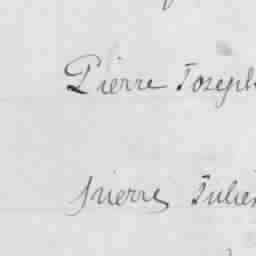 Pierre Joseph
pierre Julien